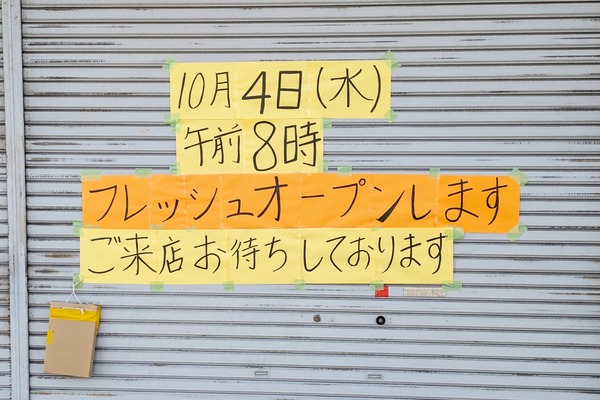 10月4日(水)
午前8時
フレッシュオープンします
ご来店お待ちしております